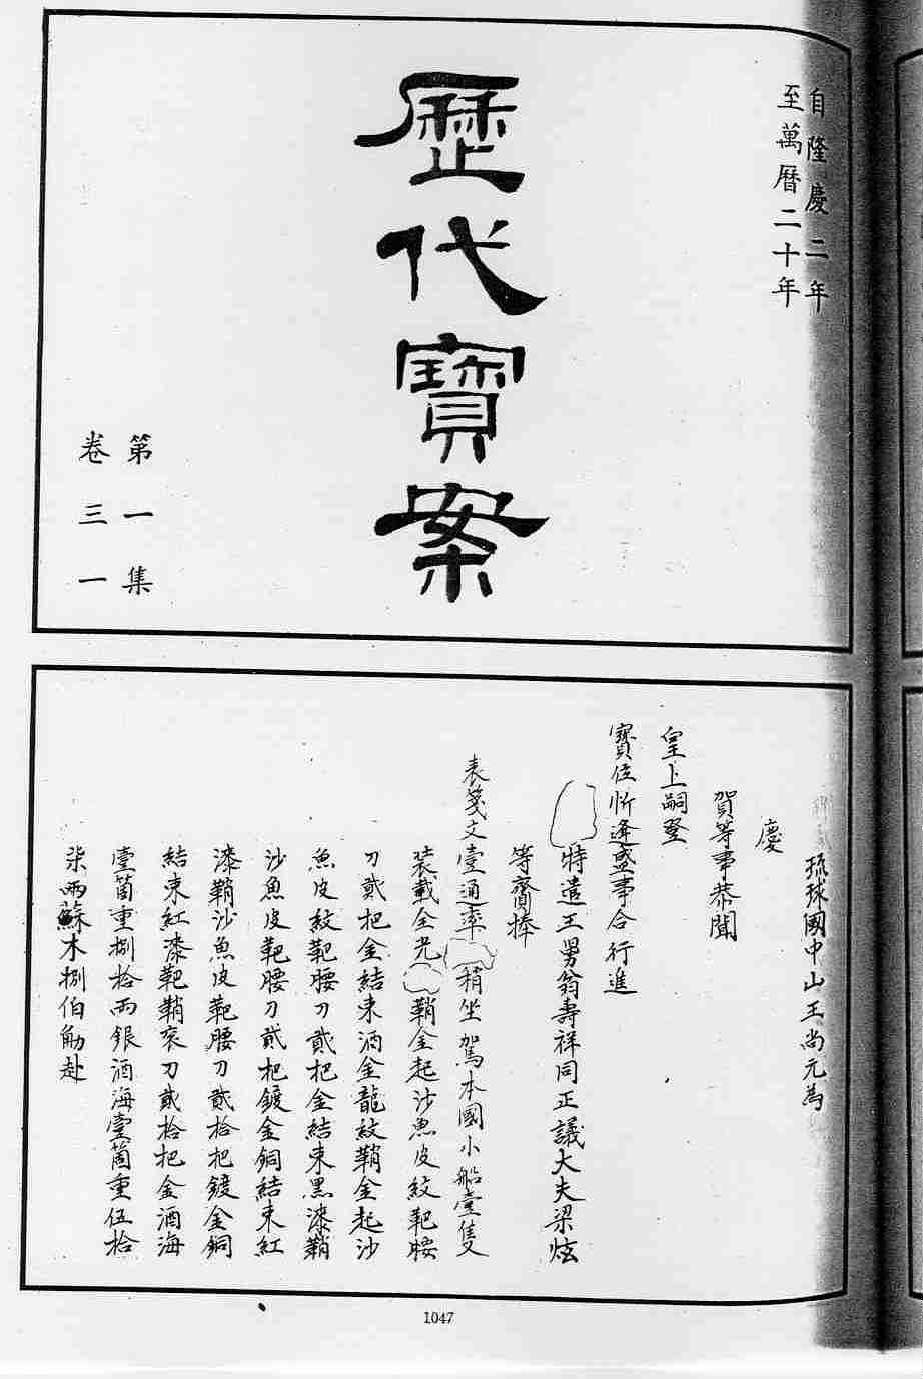 自隆慶二年
至萬曆二十年
歷代寶案
第一集
卷三一
琉球國中山王尚元為
慶
賀等事恭聞
皇上嗣登
寶位忻逢盛事合行進
特遣王男翁壽祥同正議大夫梁炫
等齎捧
表箋文壹通率梢坐駕本國小船壹隻
裝載金光鞘金起沙魚皮紋靶腰
刀貳把金結束洒金龍紋鞘金起沙
魚皮紋靶腰刀貳把金結束黑漆鞘
沙魚皮靶腰刀貳把鍍金銅結束紅
漆鞘沙魚皮靶腰刀貳拾把鍍金銅
結束紅漆靶鞘袞刀貳拾把金酒海
壹箇重捌拾兩銀酒海壹箇重伍拾
柒兩蘇木捌伯觔赴
1047